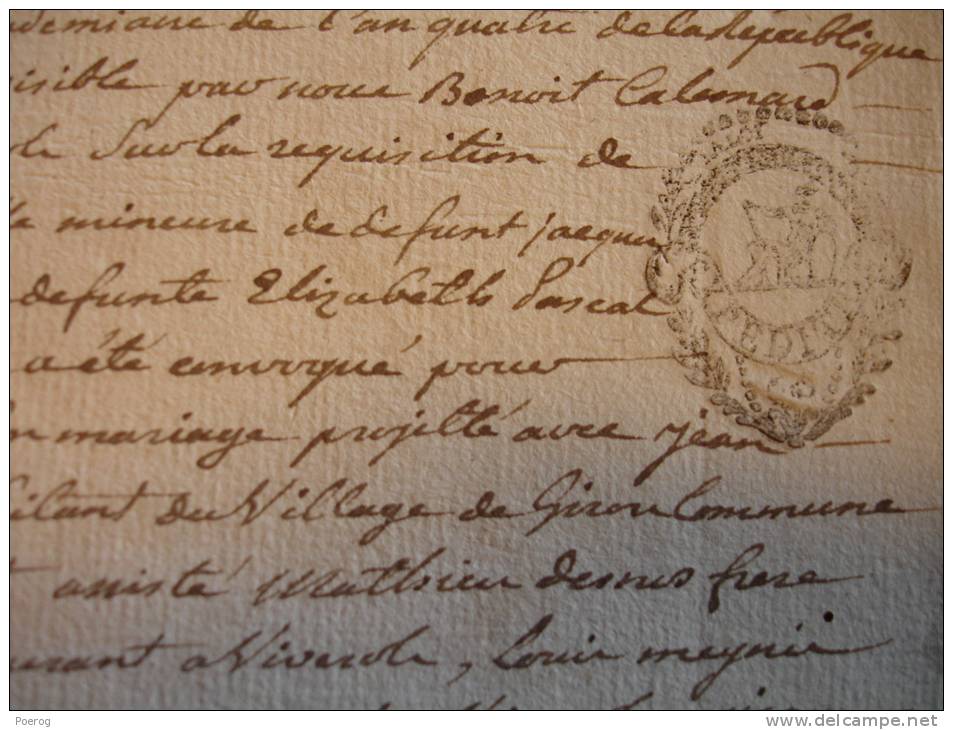 demiaire de l'an quatre de la République
isible par nous Benoit Calemard
ole Sur la requisition de
mineure de defunt jacques
defunte Elizabeth Pascal
a été convoqué pour
mariage projetté avec jean
du Village de Girou Commune
amisté Mathieu frere
a Viverols, Louis meynir
Poerog
www.delcampe.net